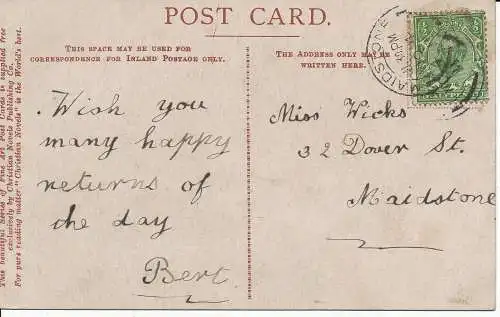 POST CARD.
THIS SPACE MAY BE USED FOR
CORRESPONDENCE FOR INLAND POSTAGE ONLY.
THE ADDRESS ONLY MAY BE
WRITTEN HERE.
MAIDSTONE
PM
Wish you
many happy
returns of
the day
Bert.
Miss Wicks
32 Dover St.
Maidstone
This beautiful Series of Fine Art Post Cards is supplied free
exclusively by Christian Novels Publishing Co.
For pure reading matter "Christian Novels" is in the World's best.